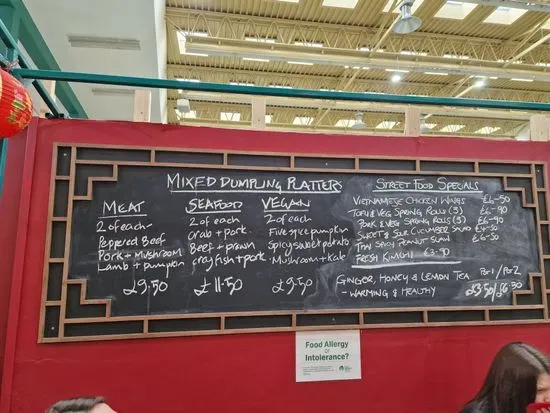 MIXED DUMPLING PLATTERS
MEAT
2 of each
Peppered Beef
Pork + Mushroom
Lamb + pumpkin
£9.50
SEAFOOD
2 of each
Crab + pork
Beef + prawn
Crayfish + pork
£11.50
VEGAN
2 of each
Five spice pumpkin
Spicy sweet potato
Mushroom + Kale
£9.50
STREET FOOD SPECIALS
VIETNAMESE CHICKEN WINGS £6-50
TOFU & VEG SPRING ROLLS (3) £6-90
PORK & VEG SPRING ROLLS (3) £6-90
SWEET & SOUR CUCUMBER SALAD £4-50
THAI SPICY PEANUT SALAD £6-50
FRESH KIMCHI £3-90
GINGER, HONEY & LEMON TEA
- WARMING & HEALTHY £3.50/£6.50
Food Allergy
or
Intolerance?